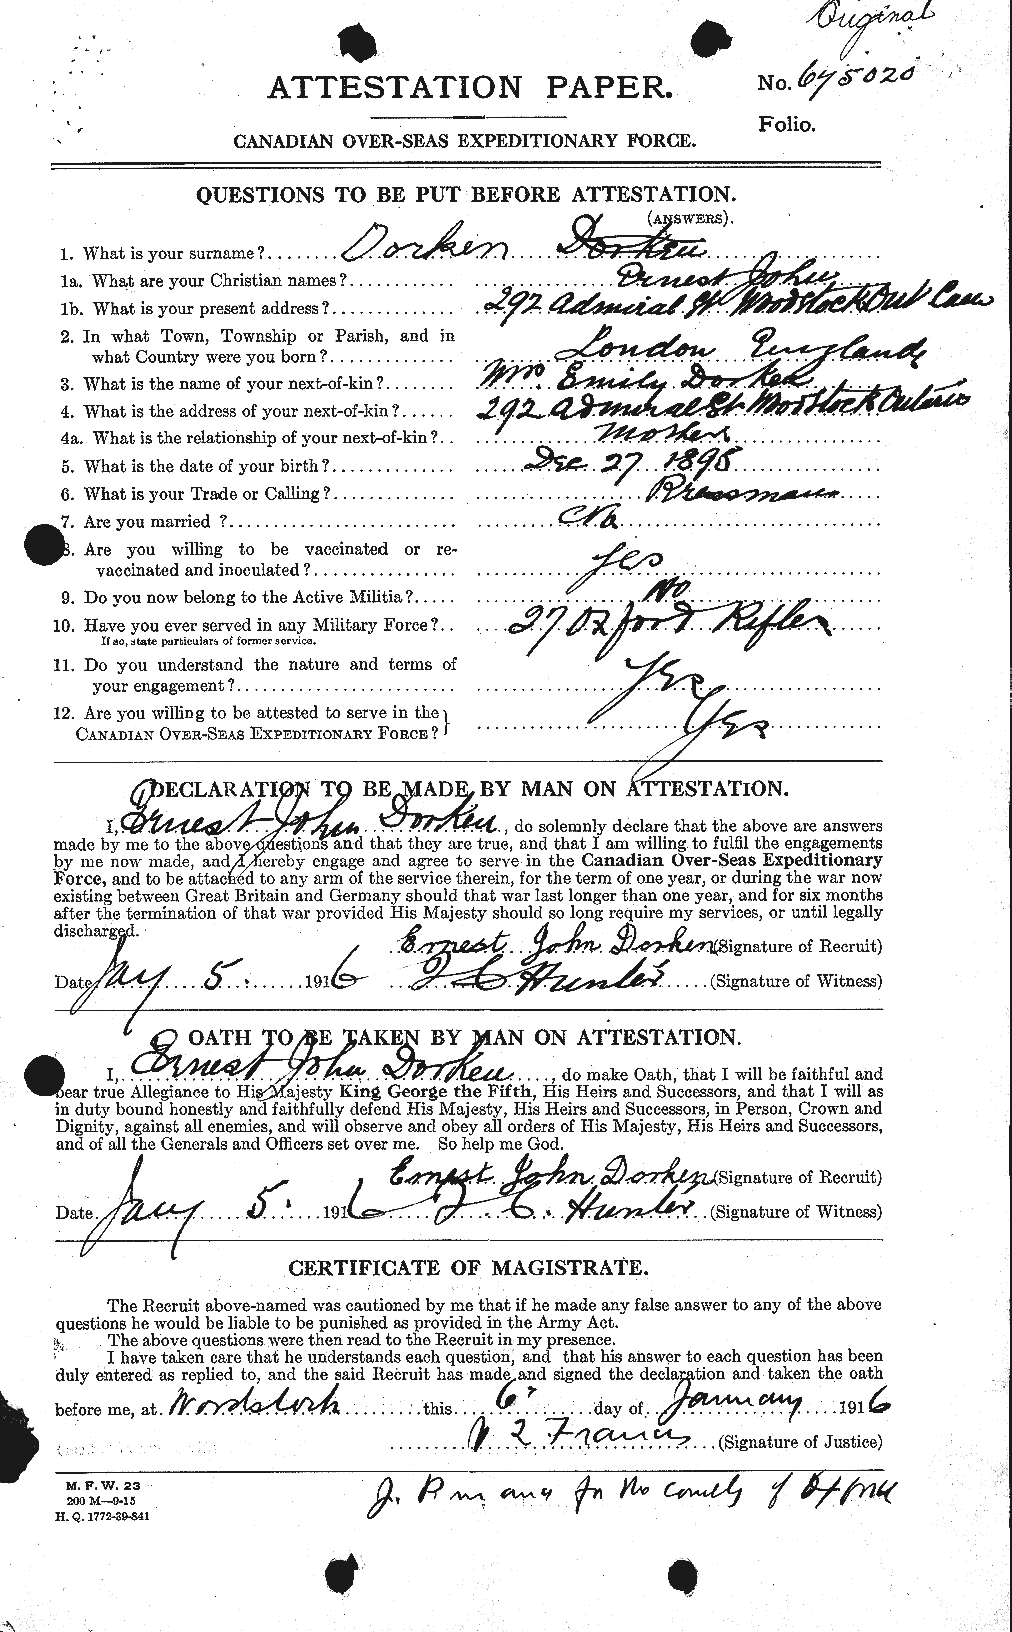 Original
ATTESTATION PAPER.
No. 675020
Folio.
CANADIAN OVER-SEAS EXPEDITIONARY FORCE.
QUESTIONS TO BE PUT BEFORE ATTESTATION.
(ANSWERS).
1. What is your surname?........ Dorken Dorken
1a. What are your Christian names?............ Ernest John
1b. What is your present address?............ 292 Admiral St Woodstock Ont Can
2. In what Town, Township or Parish, and in
what Country were you born?............ London England
3. What is the name of your next-of-kin?........ Mrs. Emily Dorken
4. What is the address of your next-of-kin?...... 292 Admiral St Woodstock Ontario
4a. What is the relationship of your next-of-kin?.. Mother
5. What is the date of your birth?............ Dec 27 1895
6. What is your Trade or Calling?............ Pressman
7. Are you married ?............ No
8. Are you willing to be vaccinated or re-
vaccinated and inoculated?............ Yes
9. Do you now belong to the Active Militia?..... No
10. Have you ever served in any Military Force?.. 27 Oxford Rifles
If so, state particulars of former service.
11. Do you understand the nature and terms of
your engagement?............ Yes
12. Are you willing to be attested to serve in the
CANADIAN OVER-SEAS EXPEDITIONARY FORCE? Yes
DECLARATION TO BE MADE BY MAN ON ATTESTATION.
I, Ernest John Dorken, do solemnly declare that the above are answers
made by me to the above questions and that they are true, and that I am willing to fulfil the engagements
by me now made, and I hereby engage and agree to serve in the Canadian Over-Seas Expeditionary
Force, and to be attached to any arm of the service therein, for the term of one year, or during the war now
existing between Great Britain and Germany should that war last longer than one year, and for six months
after the termination of that war provided His Majesty should so long require my services, or until legally
discharged.
Ernest John Dorken (Signature of Recruit)
Date Jany 5. 1916 J C Hunter (Signature of Witness)
OATH TO BE TAKEN BY MAN ON ATTESTATION.
I, Ernest John Dorken, do make Oath, that I will be faithful and
bear true Allegiance to His Majesty King George the Fifth, His Heirs and Successors, and that I will as
in duty bound honestly and faithfully defend His Majesty, His Heirs and Successors, in Person, Crown and
Dignity, against all enemies, and will observe and obey all orders of His Majesty, His Heirs and Successors,
and of all the Generals and Officers set over me. So help me God.
Ernest John Dorken (Signature of Recruit)
Date. Jany 5. 1916 J. C. Hunter (Signature of Witness)
CERTIFICATE OF MAGISTRATE.
The Recruit above-named was cautioned by me that if he made any false answer to any of the above
questions he would be liable to be punished as provided in the Army Act.
The above questions were then read to the Recruit in my presence.
I have taken care that he understands each question, and that his answer to each question has been
duly entered as replied to, and the said Recruit has made and signed the declaration and taken the oath
before me, at Woodstock this 6 day of January 1916
Francis (Signature of Justice)
M. F. W. 23
200 M—9-15
H. Q. 1772-39-841
J. P. in and for the County of Oxford